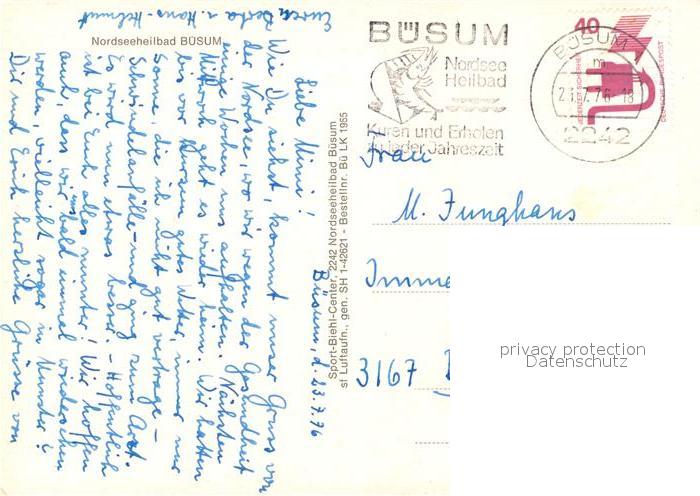 Nordseeheilbad BÜSUM
Büsum, d. 23.7.76
Liebe Mimi!
Wie Du siehst, kommt unser Gruss von
der Nordsee, wo wir wegen der Gesundheit
einige Wochen uns aufhalten. Nächsten
Mittwoch geht es wieder heim. Wir hatten
bis vor kurzem gutes Wetter, immer nur
Sonne, die ich nicht gut vertrage –
Schwindelanfälle – und ging zum Arzt.
Es wird nun etwas besser. – Hoffentlich
ist bei Euch alles munter! Wir hoffen
auch, dass wir uns bald einmal wiedersehen
werden, vielleicht sogar in Münster?
Dir und Erich herzliche Grüsse von
Euren Herta u. Hans-Helmut
Sport-Biehl-Center, 2242 Nordseeheilbad Büsum
sf Luftaufn., gen. SH 1-42621 - Bestellnr. Bü LK 1965
BÜSUM
Nordsee
Heilbad
Kuren und Erholen
zu jeder Jahreszeit
BÜSUM
m
23.7.76-18
2242
40
JEDERZEIT SICHERHEIT
DEUTSCHE BUNDESPOST
Frau
M. Junghans
Imme
3167
privacy protection
Datenschutz